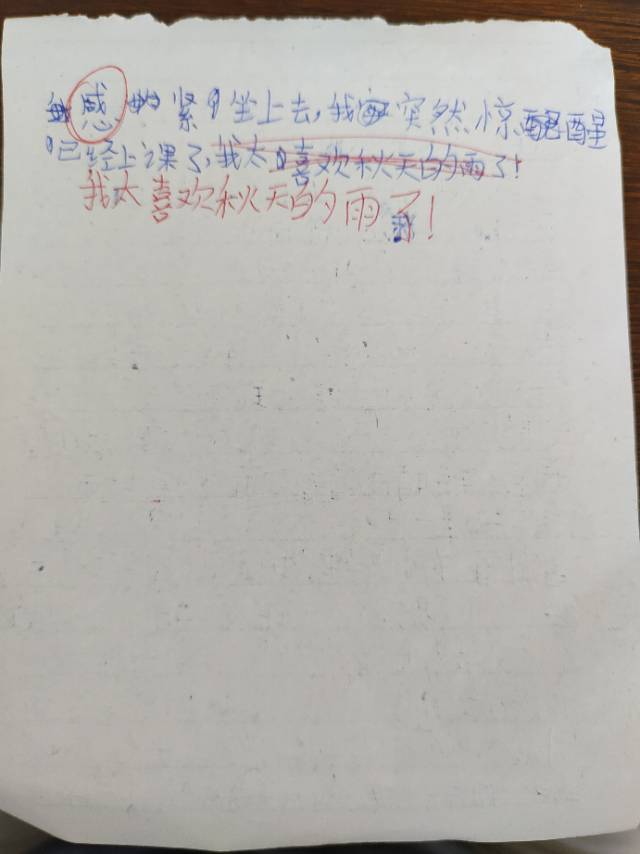 感 紧 坐上去,我突然惊醒
已经上课了,我太喜欢秋天的雨了!
我太喜欢秋天的雨了!